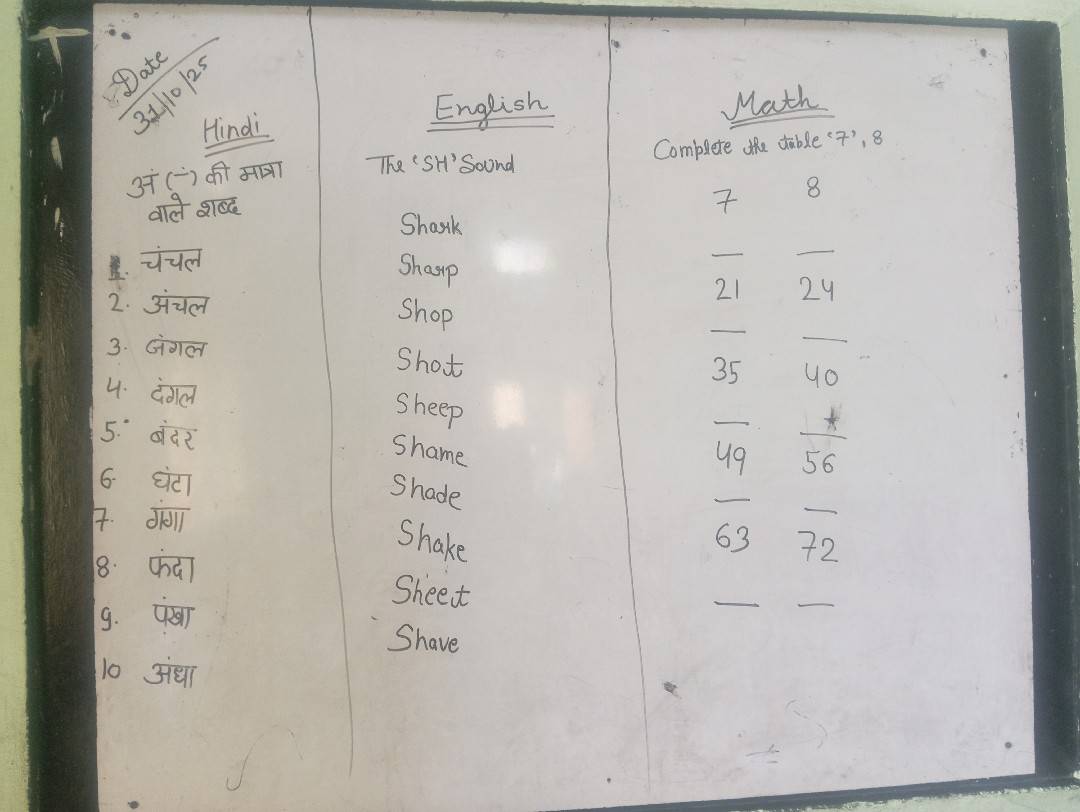 Date
31/10/25
Hindi
अं (-ं) की मात्रा
वाले शब्द
1. चंचल
2. अंचल
3. जंगल
4. दंगल
5. बंदर
6. घंटा
7. गंगा
8. फंदा
9. पंखा
10 अंधा
English
The 'SH' Sound
Shark
Sharp
Shop
Shot
Sheep
Shame
Shade
Shake
Sheet
Shave
Math
Complete the table '7', 8
7 8
__ __
21 24
__ __
35 40
__ __
49 56
__ __
63 72
__ __